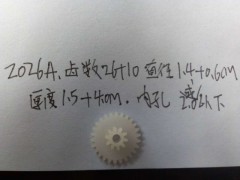 2026A、齿数26+10 直径1.4+0.6cm
厚度1.5+4cm. 内孔 以下